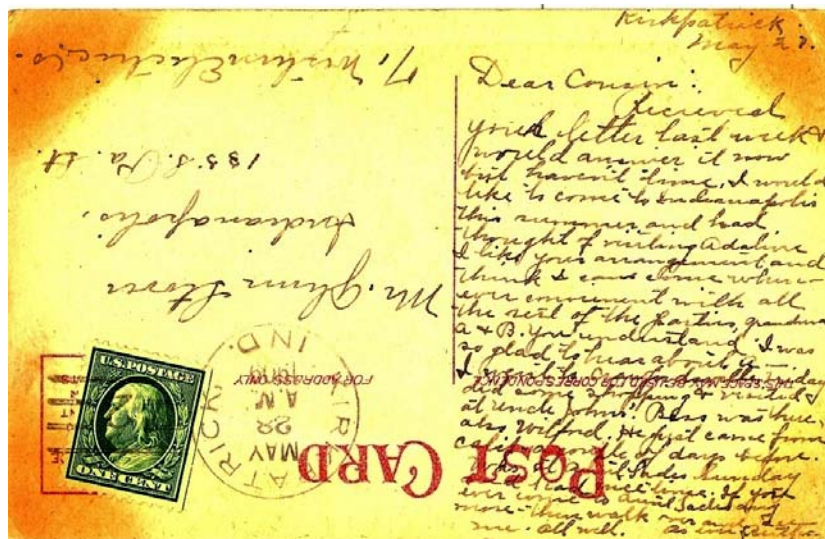 Kirkpatrick
May 27.
Dear Cousin:
Recieved
your letter last week &
would answer it now
but haven't time. I would
like to come to Indianapolis
this summer and had
thought of visiting Adaline
I like your arrangement and
think I can come when-
ever convenient with all
the rest of the parties, grandma
A & B. You understand. I was
so glad to hear about A—.
I
did some shopping & visited
at Uncle Johns'. Bess was there,
also Wilford. He just came from
a couple of days before.
Sunday
nice time. If you
ever come to Aunt Sades any
more then walk over and see
me. All well. As ever
Mr. Glenn Stover
Indianapolis.
135 S. Pa. St.
% Western Electric Co.
POST CARD
THIS SPACE MAY BE USED FOR CORRESPONDENCE
FOR ADDRESS ONLY
KIRKPATRICK IND.
MAY
28
A.M.
1909
U.S. POSTAGE
ONE CENT